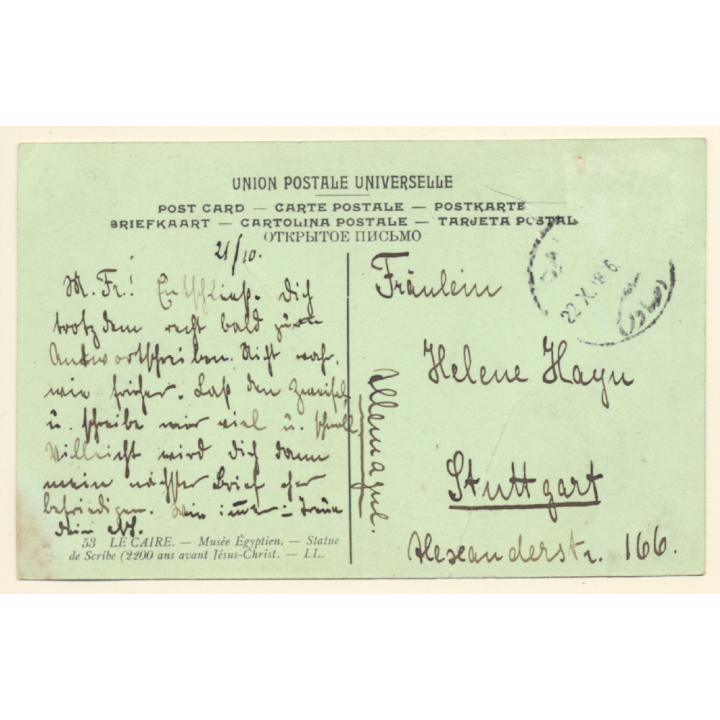 UNION POSTALE UNIVERSELLE
POST CARD — CARTE POSTALE — POSTKARTE
BRIEFKAART — CARTOLINA POSTALE — TARJETA POSTAL
ОТКРЫТОЕ ПИСЬМО
21/10.
M. Fr.! Entschließ. Dich
trotzdem recht bald zum
Antwortschreiben. Nicht wahr,
wie früher. Laß den Zweifel
u. schreibe mir viel u. schnell
Vielleicht wird Dich dann
mein nächster Brief eher
befriedigen. Wie immer in Treue
Dein
53 LE CAIRE. — Musée Égyptien. — Statue
de Scribe (2200 ans avant Jésus-Christ. — LL.
22.X.
Fräulein
Helene Hayn
Stuttgart
Alexanderstr. 166.
Allemagne.